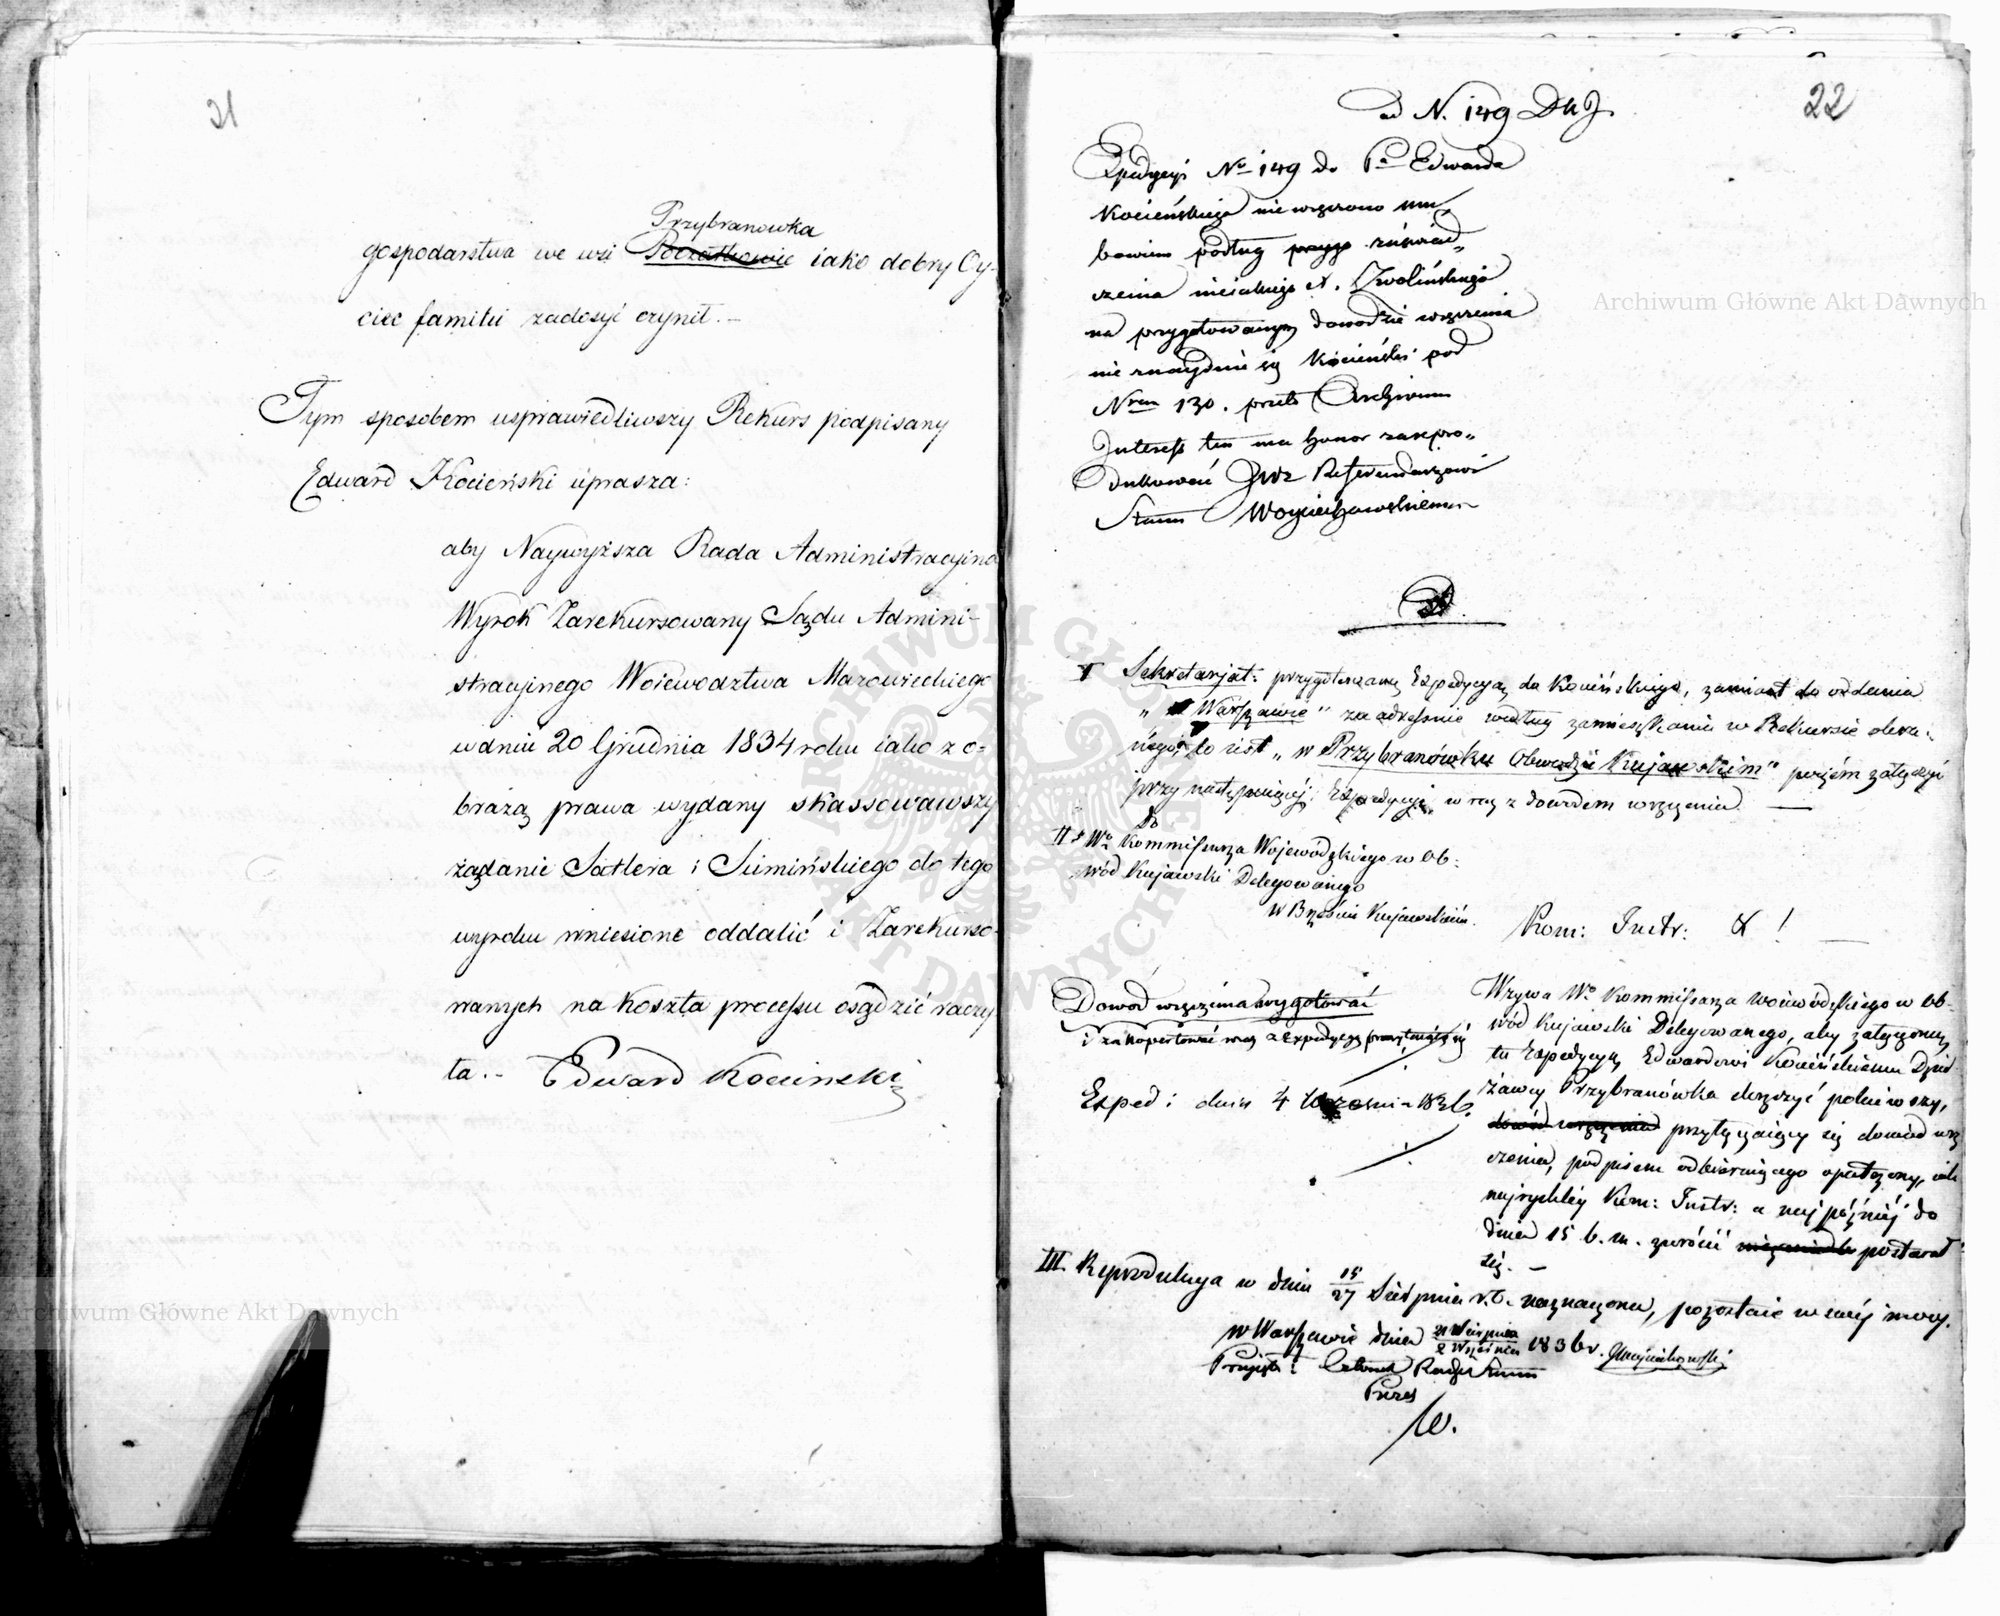 21
Przybranowka
gospodarstwa we wsi iako dobry Oy-
ciec familii zadosyć czynił.–
Tym sposobem usprawiedliwszy Rekurs podpisany
Edward Kocieński uprasza:
aby Naywyższa Rada Administracyina
Wyrok Zarekursowany Sądu Admini-
stracyinego Woiewodztwa Mazowieckiego
w dniu 20 Grudnia 1834 roku iako z o-
brazą prawa wydany skassowawszy
żądanie Satlera i Sumińskiego do tego
wyroku wniesione oddalić i Zarekurso-
wanych na koszta processu osądzić raczy-
ła.– Edward Kocienski
22
ad N. 149
Expedycyi No 149 do Pa Edwarda
Kocieńskiego nie wręczono mu,
bowiem podług zaświad„
czenia niejakiego N. Zwolińskiego
na przygotowanym dowodzie wręczenia
nie znayduie się Kocieński pod
Nrem 130. przeto Archivum
Interess ten ma honor zarepro„
dukować JWz Referendarzowi
Stanu Woyciechowskiemu
I Sekretarjat: przygotowaną Expedycyą do Kocińskiego, zamiast do oddania
„w Warszawie" zaadressuie według zamieszkania w Rekursie obra:
nego; to iest „w Przybranówku Obwodzie Kujawskim" poczém załączyć
przy następuiącéj Expedycyi wraz z dowodem wręczenia. —
II Do Wo Kommissarza Wojewódzkiego w Ob:
wód Kujawski Delegowanego
w Brześciu Kujawskim.
Kom: Instr: & ! —
Dowód wręczenia wygotować
i zakopertować wraz z Expedycyą
Exped: dnia 4 Września 1836.
Wzywa Wo Kommissarza woiewódzkiego w Ob-
wód Kujawski Delegowanego, aby załączoną
tu Expedycyą Edwardowi Kocieńskiemu Dzier-
żawcy Przybranówka doręczyć poleciwszy,
dowód wręczenia przyłączaiący się dowód wrę
czenia, podpisem odbieraiącego opatrzony, iak
najrychléy Kom: Instr: a najpóźniéj do
dnia 15 b. m. zwrócić postarał
się. —
III. Reprodukcya w dniu 15/27 Sierpnia r.b. naznaczona, pozostaie w swéj mocy.
w Warszawie dnia 21 Sierpnia / 2 Września 1836 r. JWoyciechowski
Przyjęto: Członek Rady Stanu
Prezes
W.
Archiwum Główne Akt Dawnych
Archiwum Główne Akt Dawnych
ARCHIWUM GŁÓWNE AKT DAWNYCH